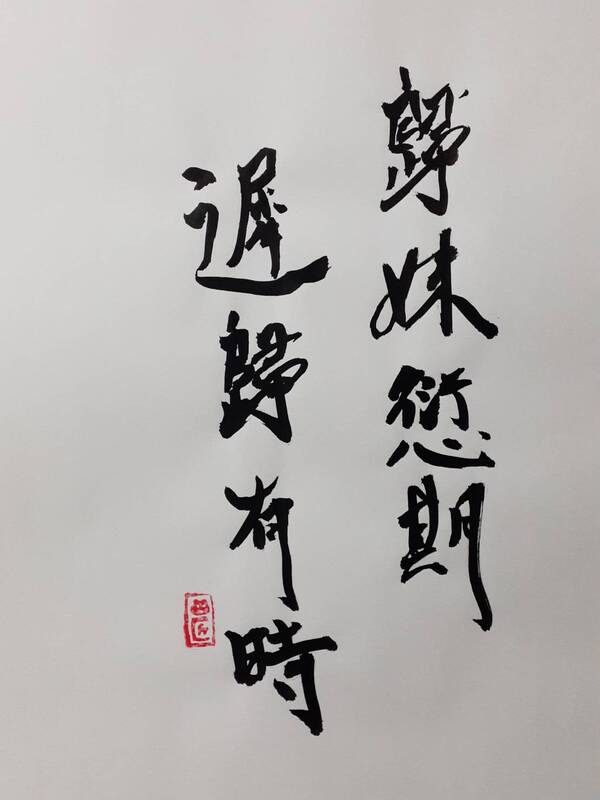 歸妹愆期
遲歸有時